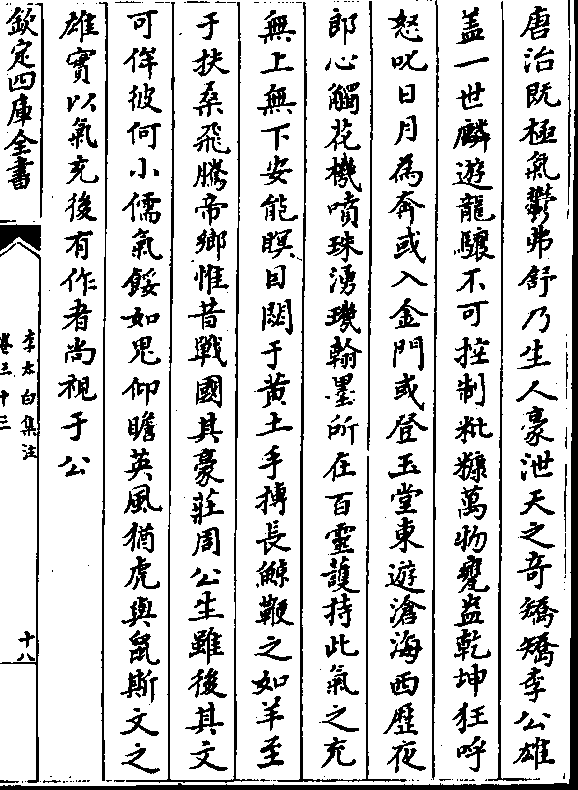 唐治既極氣鬱弗舒乃生人豪泄天之奇矯矯李公雄
蓋一世麟遊龍驤不可控制粃糠萬物甕盎乾坤狂呼
怒叱日月為奔或入金門或登玉堂東遊滄海西歷夜
郎心觸花機噴珠湧璣翰墨所在百靈護持此氣之充
無上無下安能瞑目閟于黄土手摶長鯨鞭之如羊至
于扶桑飛騰帝鄉惟昔戰國其豪莊周公生雖後其文
可侔彼何小儒氣餒如鬼仰瞻英風猶虎與鼠斯文之
雄實以氣充後有作者尚視于公
欽定四庫全書
李太白集注
卷三十三
十八